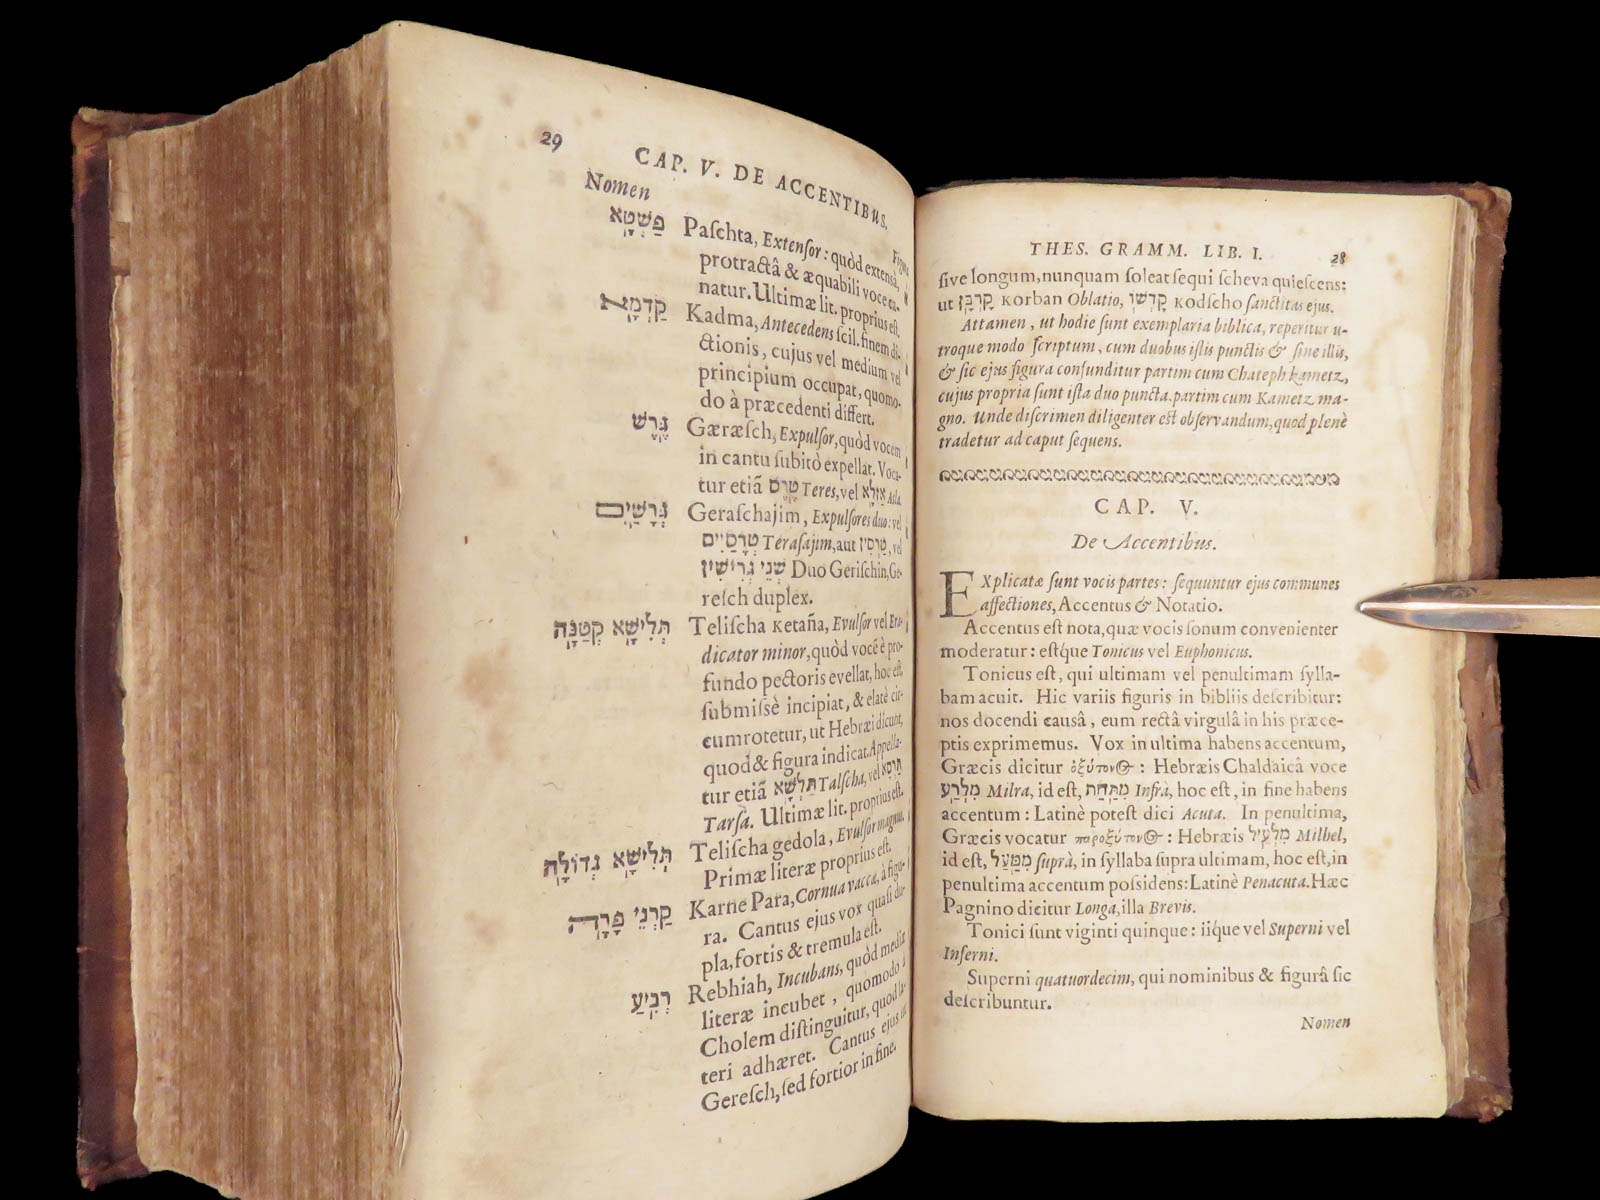 THES. GRAMM. LIB. I. 28
ſive longum, nunquam ſoleat ſequi ſcheva quieſcens:
ut קָרְבָּן Korban Oblatio, קָדְשׁוֹ Kodſcho ſanctitas ejus.
Attamen, ut hodie ſunt exemplaria biblica, reperitur u-
troque modo ſcriptum, cum duobus iſtis punctis & ſine illis,
& ſic ejus figura confunditur partim cum Chateph kametz,
cujus propria ſunt iſta duo puncta, partim cum Kametz ma-
gno. Unde diſcrimen diligenter eſt obſervandum, quod plenè
tradetur ad caput ſequens.
CAP. V.
De Accentibus.
EXplicatæ ſunt vocis partes: ſequuntur ejus communes
affectiones, Accentus & Notatio.
Accentus eſt nota, quæ vocis ſonum convenienter
moderatur: eſtque Tonicus vel Euphonicus.
Tonicus eſt, qui ultimam vel penultimam ſylla-
bam acuit. Hic variis figuris in bibliis deſcribitur:
nos docendi causâ, eum rectâ virgulâ in his præce-
ptis exprimemus. Vox in ultima habens accentum,
Græcis dicitur ὀξύτονος: Hebræis Chaldaicâ voce
מִלְּרַע Milra, id eſt, מִתַּחַת Infrà, hoc eſt, in fine habens
accentum: Latinè poteſt dici Acuta. In penultima,
Græcis vocatur παροξύτονος: Hebræis מִלְּעֵיל Milhel,
id eſt, מִמַּעַל ſuprà, in ſyllaba ſupra ultimam, hoc eſt, in
penultima accentum poſsidens: Latinè Penacuta. Hæc
Pagnino dicitur Longa, illa Brevis.
Tonici ſunt viginti quinque: iique vel Superni vel
Inferni.
Superni quatuordecim, qui nominibus & figurâ ſic
deſcribuntur.
Nomen
29 CAP. V. DE ACCENTIBUS.
Nomen
פַּשְׁטָא Paſchta, Extenſor: quòd extensâ,
protractâ & æquabili voce ca-
natur. Ultimæ lit. proprius eſt.
קַדְמָא Kadma, Antecedens ſcil. finem di-
ctionis, cujus vel medium vel
principium occupat, quomo-
do à præcedenti differt.
גֶּרֶשׁ Gæræſch, Expulſor, quòd vocem
in cantu ſubitò expellat. Voca-
tur etiã טֶרֶס Teres, vel אַזְלָא Asla.
גְּרָשַׁיִם Geraſchajim, Expulſores duo: vel
טְרָסַיִים Teraſajim, aut טַרְסִין, vel
שְׁנֵי גְּרִישִׁין Duo Geriſchin, Ge-
reſch duplex.
תְּלִישָׁא קְטַנָּה Teliſcha Ketaña, Evulſor vel Era-
dicator minor, quòd vocẽ è pro-
fundo pectoris evellat, hoc eſt,
ſubmiſsè incipiat, & elatè cir-
cumrotetur, ut Hebræi dicunt,
quod & figura indicat. Appella-
tur etiã תַּלְשָׁא Talſcha, vel תַּרְסָא
Tarſa. Ultimæ lit. proprius eſt.
תְּלִישָׁא גְדוֹלָה Teliſcha gedola, Evulſor magnus.
Primæ literæ proprius eſt.
קַרְנֵי פָרָה Karne Para, Cornua vaccæ, à figu-
ra. Cantus ejus vox quaſi du-
pla, fortis & tremula eſt.
רְבִיעַ Rebhiah, Incubans, quòd mediæ
literæ incubet, quomodo à
Cholem diſtinguitur, quod la-
teri adhæret. Cantus ejus ut
Gereſch, ſed fortior in fine.